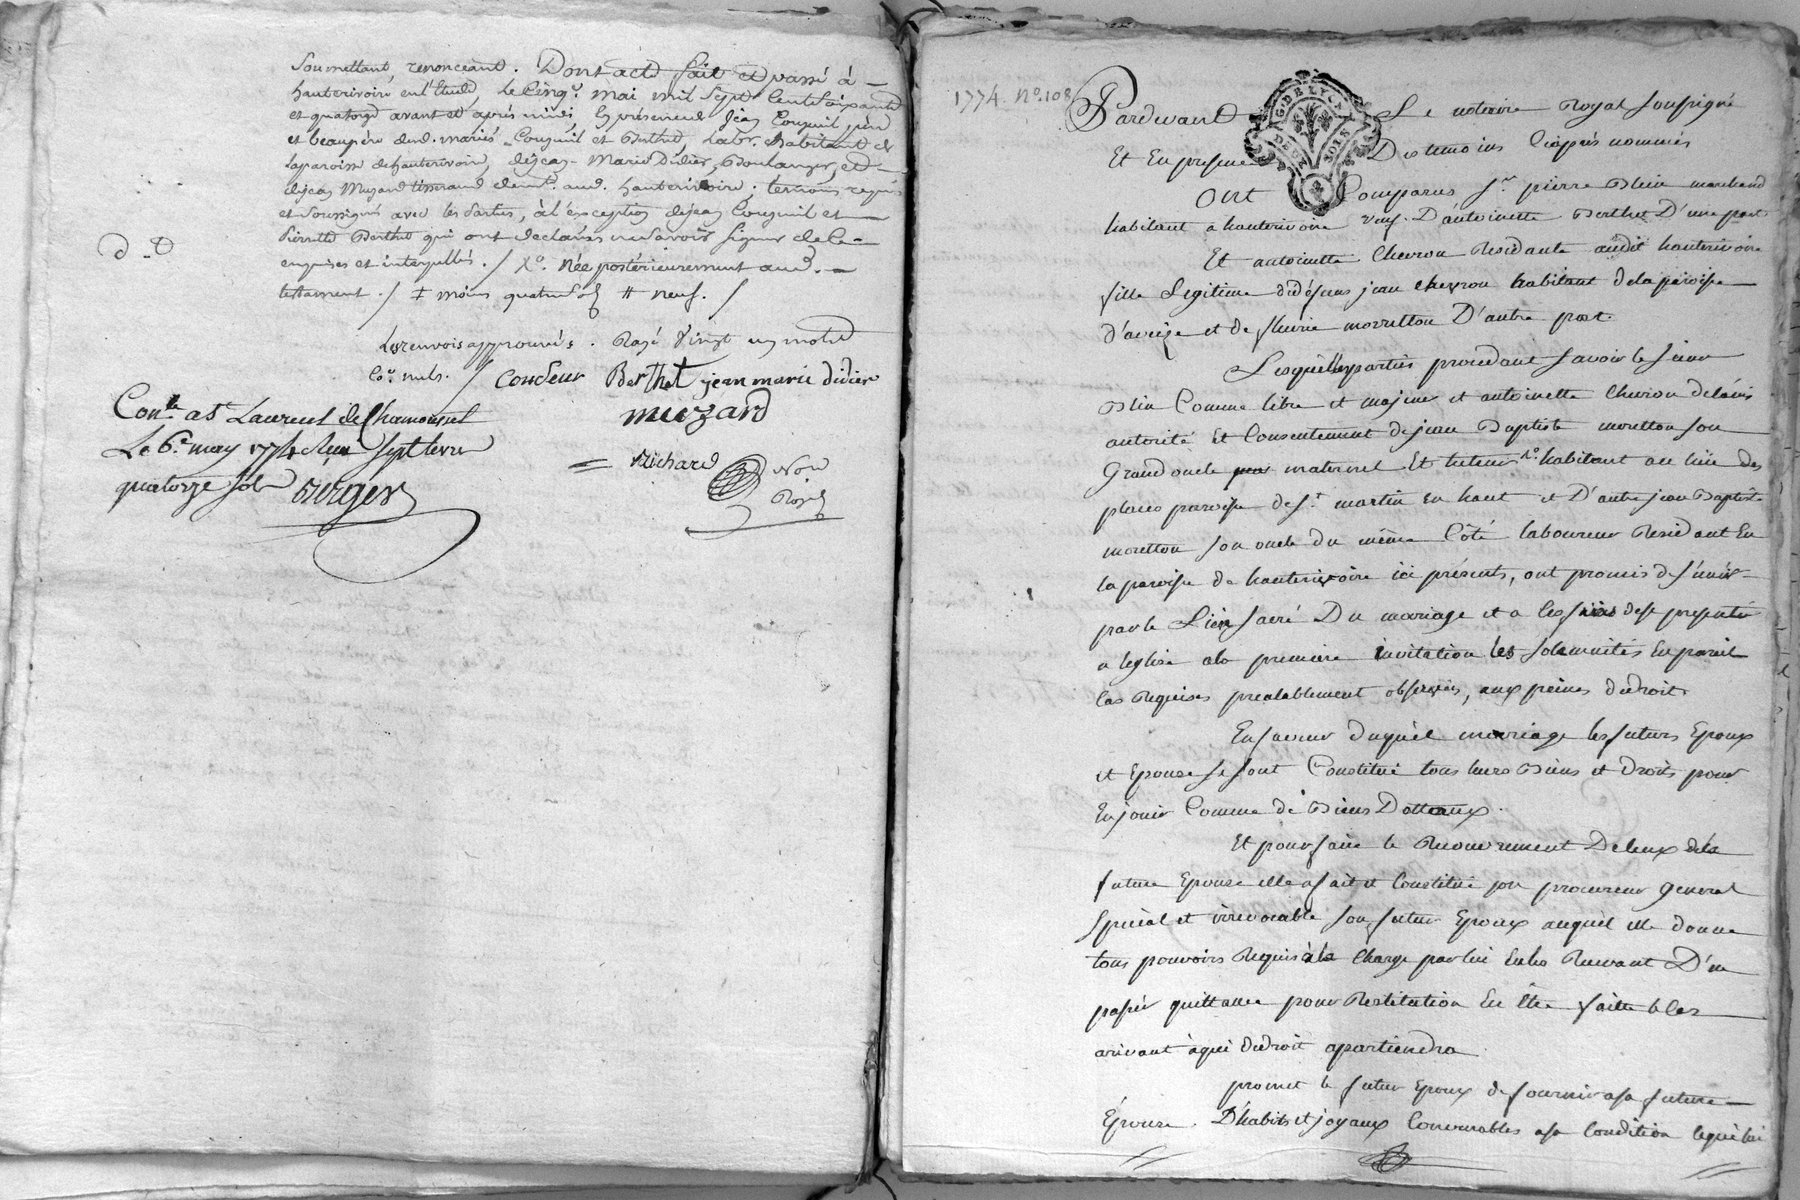 Soumettant, renonceant. Dont acte fait et passé à
hauterivoire en l'Etude, le Cinq.e mai mil Sept Cent Soixante
et quatorze avant et après midi, En présence de Jean Couzeuil père
et beaupère desd. mariés Couzeuil et Berthet, Labr. habitant de
la paroisse de hauterivoire, de jean Marie Didier, Boulanger, et
de jean Muzard tisserand demt. aud. hauterivoire. témoins requis
et Soussignés avec les Parties, à l'exception de jean Couzeuil et
Pierrette Berthet qui ont declarés ne Savoir Signer de ce
enquises et interpellés. / X°. Née postérieurement aud.
testament. / ‡ moins quatre Sols # neuf. /
d. D
Les renvois approuvés. Rayé Vingt un mots
Co.e nuls. / Coudeur Berthet jean marie didier
muzard
Con.lé a St Laurent de Chamousset
Le 6e may 1774 Reçu Sept livres
quatorze Sols Berger
Richard
Nore
Royal
1774. No. 108
G. DE LYON
DEUX SOLS
Pardevant Le notaire Royal Soussigné
Et En presence Des temoins Ciaprés nommés
Ont Comparus Sr. pierre Blein marchand
habitant a hauterivoire veuf D'antoinette Berthet D'une part
Et antoinette Chevron Residante audit hauterivoire
fille Legitime de défunt jean chevron habitant de la paroisse
d'aveize et de fleurie moretton D'autre part.
Lesquelles parties procedant Savoir le Sieur
Blein Comme libre et majeur et antoinette chevron de l'avis
autorité Et Consentement de jean Baptiste moretton son
Grand oncle maternel Et tuteur habitant au lieu des
places paroisse de St martin en haut et D'autre jean Baptiste
moretton son oncle du même Côté laboureur Residant En
la paroisse de hauterivoire ici présents, ont promis de s'unir
par le Lien sacré Du mariage et a ces fins de se presenter
a leglise ala premiere invitation les Solemnités En pareil
Cas Requises prealablement observées, aux peines de droit
En faveur duquel mariage les futurs Epoux
et Epouse se sont Constitué tous leurs Biens et Droits pour
En jouir Comme de Biens Dotteaux.
Et pour faire le Recouvrement De Ceux dela
future Epouse elle a fait et Constitué son procureur general
Special et irrevocable son futur Epoux auquel elle donne
tous pouvoirs Requis à la charge par lui En les Recevant D'en
passer quittance pour Restitution En être faitte le Cas
arivant à qui de droit apartiendra
promet le futur Epoux de fournir a sa future
Epouse D'habits et joyaux Convenables a sa Condition lequel lui